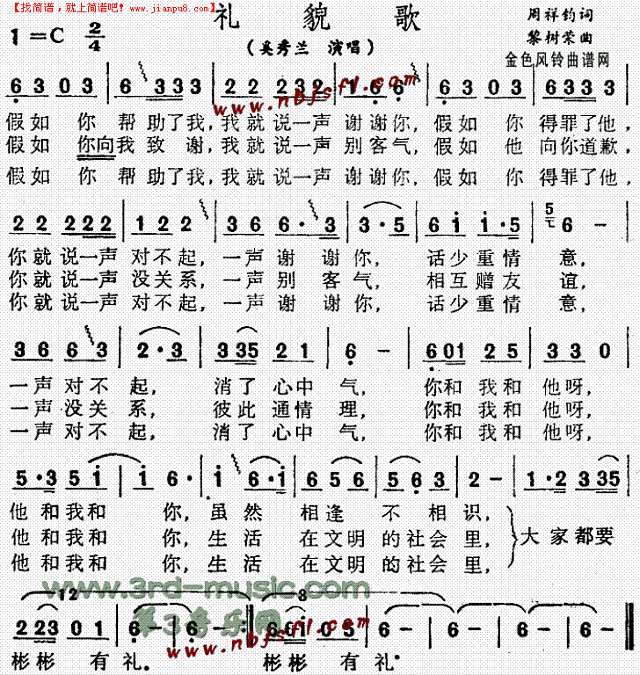 【找简谱，就上简谱吧！www.jianpu8.com】
礼貌歌
周祥钧词
1=C 2/4
(吴秀兰 演唱)
黎树荣曲
金色风铃曲谱网
6 3 03 | 6 333 | 22 232 | 1·6 6 | 6 3 03 | 6 3 03 |
www.nbjsfl.com
假如 你 帮 助了我，我 就 说一声 谢谢你，假如 你 得罪了他，
假如 你向我 致 谢，我 就 说一声 别客气，假如 他 向你道歉，
假如 你 帮 助了我，我 就 说一声 谢谢你，假如 你 得罪了他，
22 222 | 1 2 2 | 36 6·3 | 3·5 | 6i i·5 | 6 - |
你就 说一声 对不起，一声 谢 谢 你， 话少 重情 意，
你就 说一声 没关系，一声 别 客 气， 相互 赠友 谊，
你就 说一声 对不起，一声 谢 谢 你， 话少 重情 意，
36 63 | 2·3 | 335 21 | 6 - | 601 25 | 33 0 |
一声 对不 起， 消了 心中 气， 你和 我和 他呀，
一声 没关 系， 彼此 通情 理， 你和 我和 他呀，
一声 对不 起， 消了 心中 气， 你和 我和 他呀，
5·3 5i | i 6· | 6 6·i | 6 5·6 | 5 6 3 | 2 - | 1·2 335 |
他 和我和 你，虽 然 相逢 不 相识，
他 和我和 你，生 活 在文明 的社会 里，
他 和我和 你，生 活 在文明 的社会 里，
大家都要
www.3rd-music.com
12
8
第3音乐网
2 23 01 | 6 - | 6 - :‖ 601 05 | 6 - | 6 - | 6 - ‖
www.nbjsfl.com
彬彬 有 礼。 彬彬 有 礼。